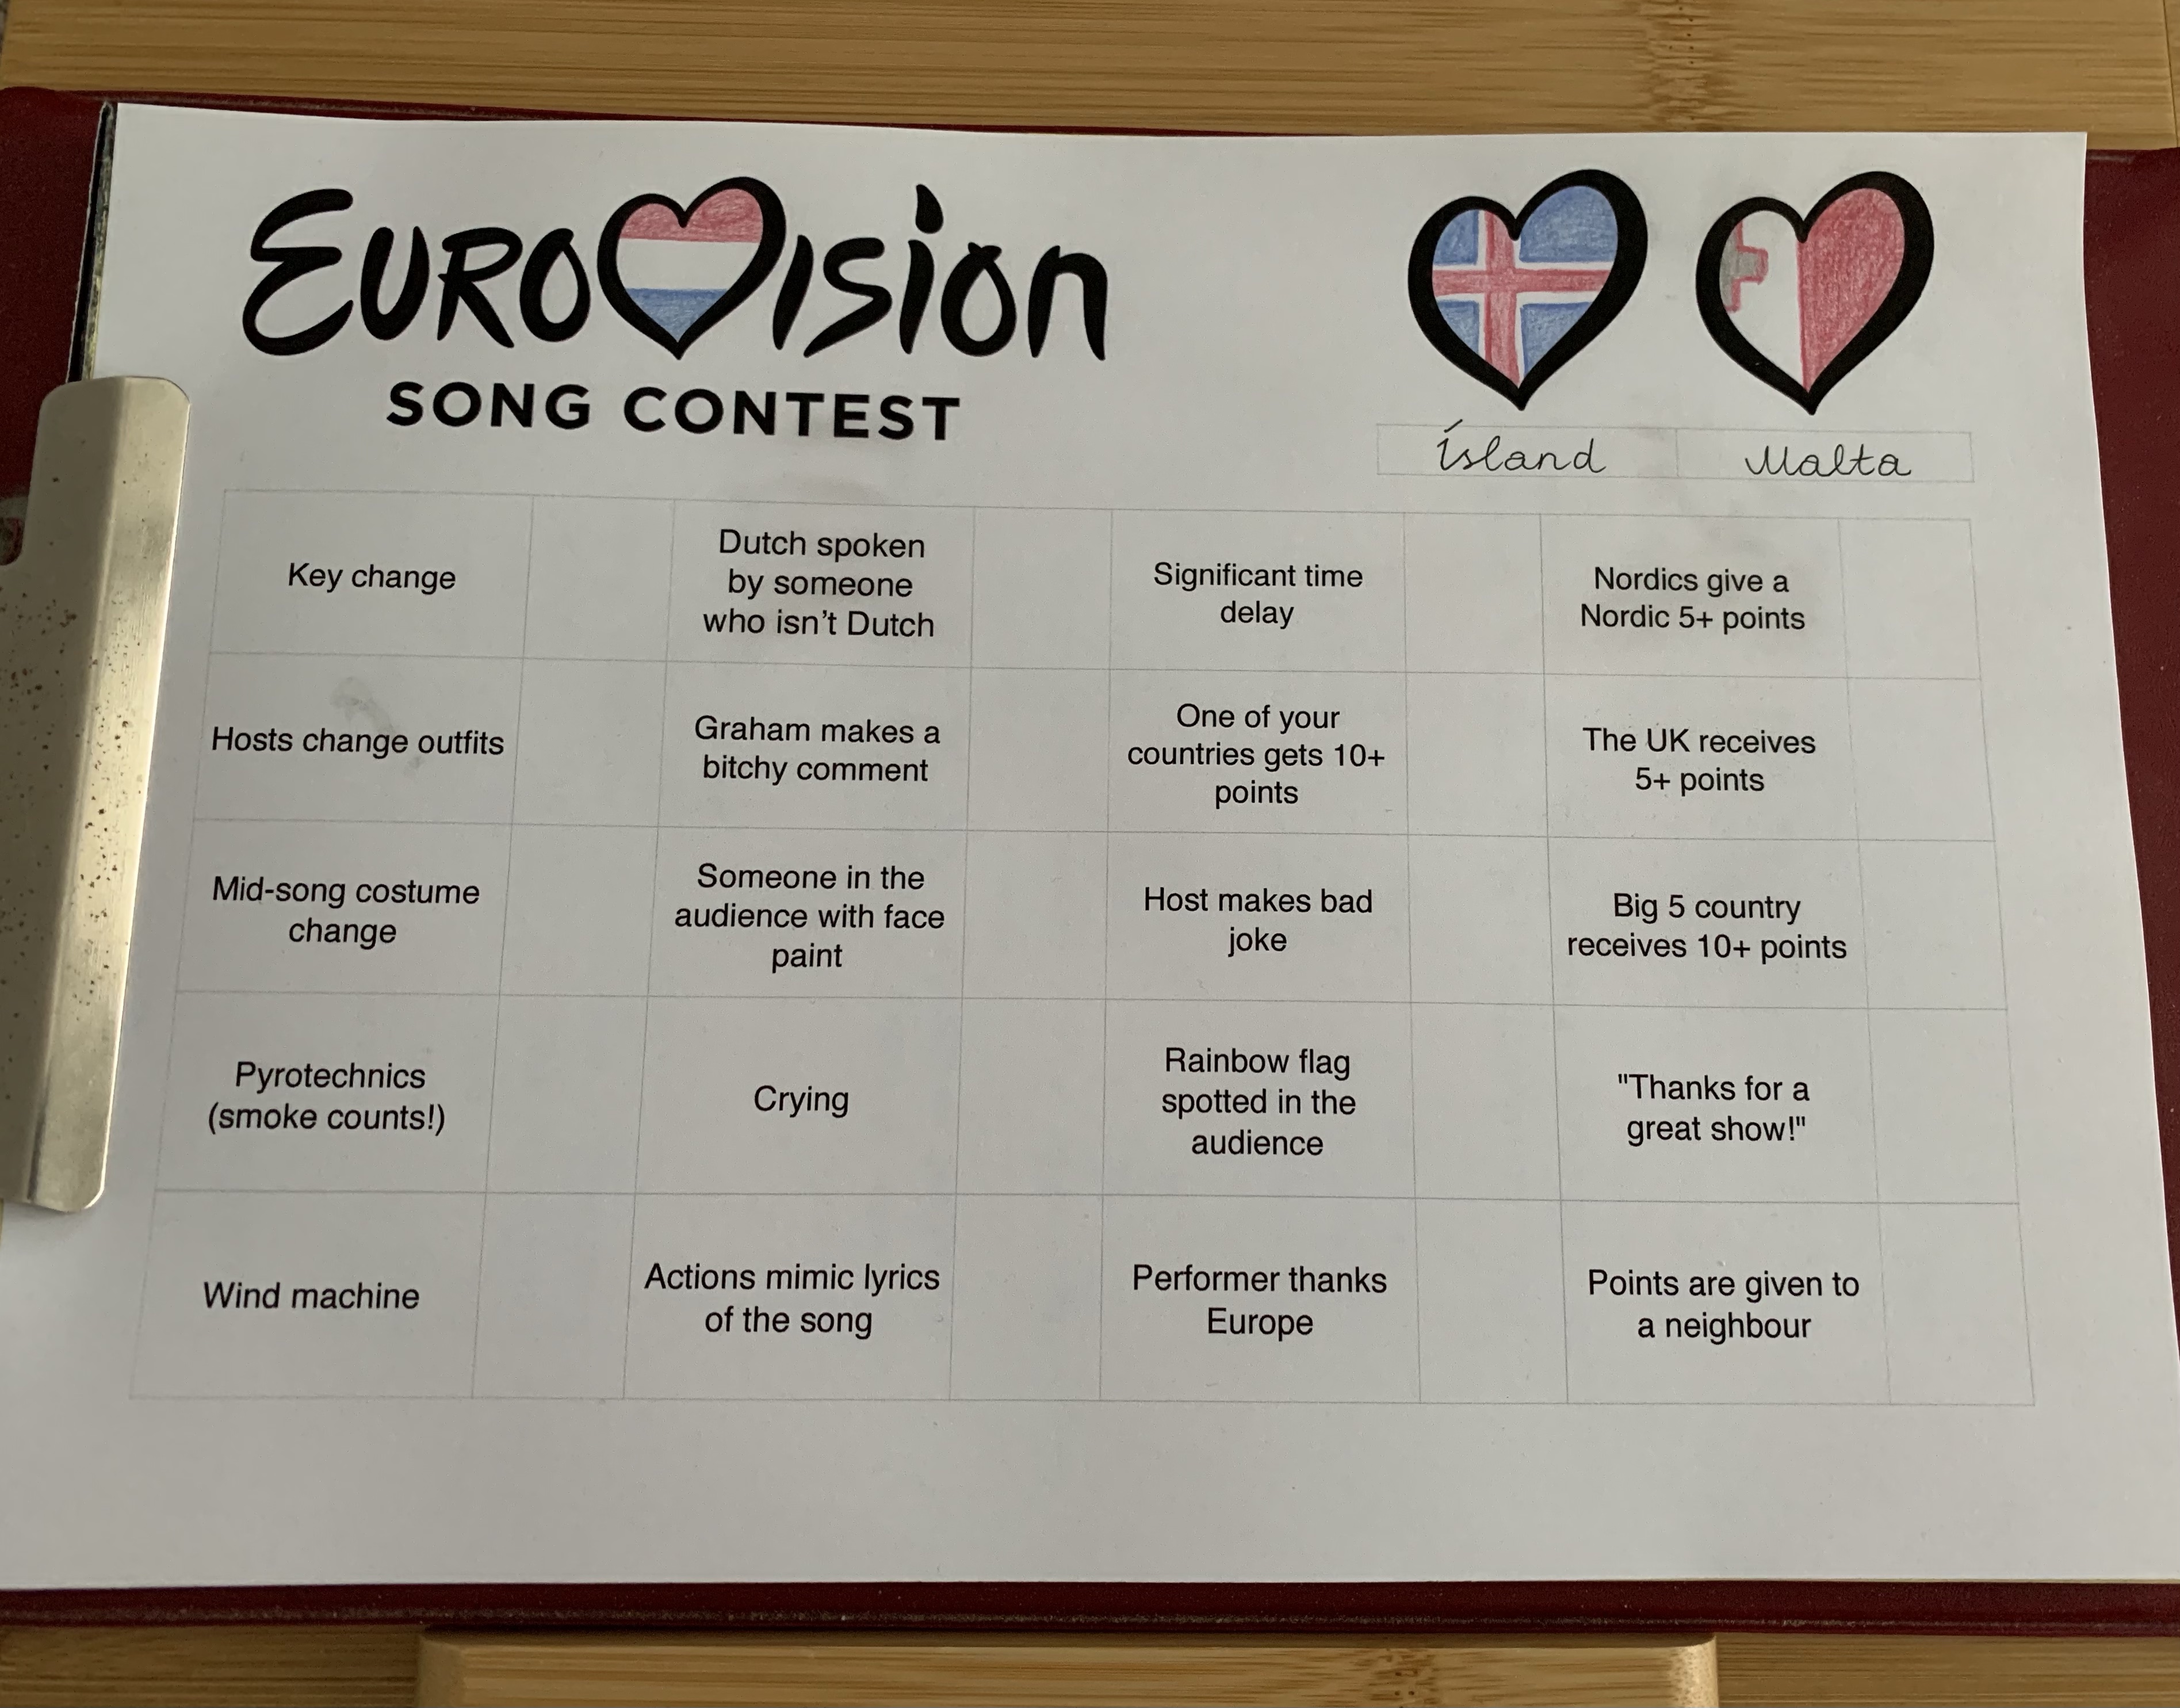 EUROVISION
SONG CONTEST
Ísland
Malta
Key change
Dutch spoken
by someone
who isn't Dutch
Significant time
delay
Nordics give a
Nordic 5+ points
Hosts change outfits
Graham makes a
bitchy comment
One of your
countries gets 10+
points
The UK receives
5+ points
Mid-song costume
change
Someone in the
audience with face
paint
Host makes bad
joke
Big 5 country
receives 10+ points
Pyrotechnics
(smoke counts!)
Crying
Rainbow flag
spotted in the
audience
"Thanks for a
great show!"
Wind machine
Actions mimic lyrics
of the song
Performer thanks
Europe
Points are given to
a neighbour